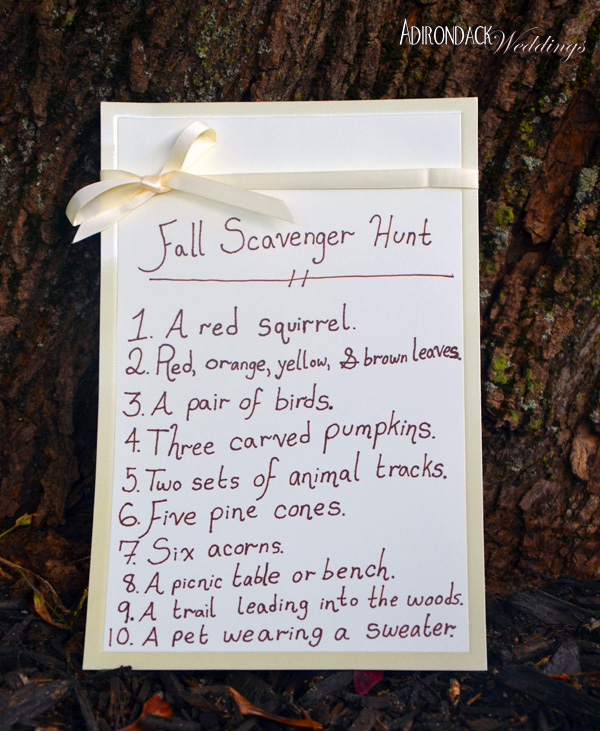 ADIRONDACK Weddings
Fall Scavenger Hunt
1. A red squirrel.
2. Red, orange, yellow, & brown leaves.
3. A pair of birds.
4. Three carved pumpkins.
5. Two sets of animal tracks.
6. Five pine cones.
7. Six acorns.
8. A picnic table or bench.
9. A trail leading into the woods.
10. A pet wearing a sweater.